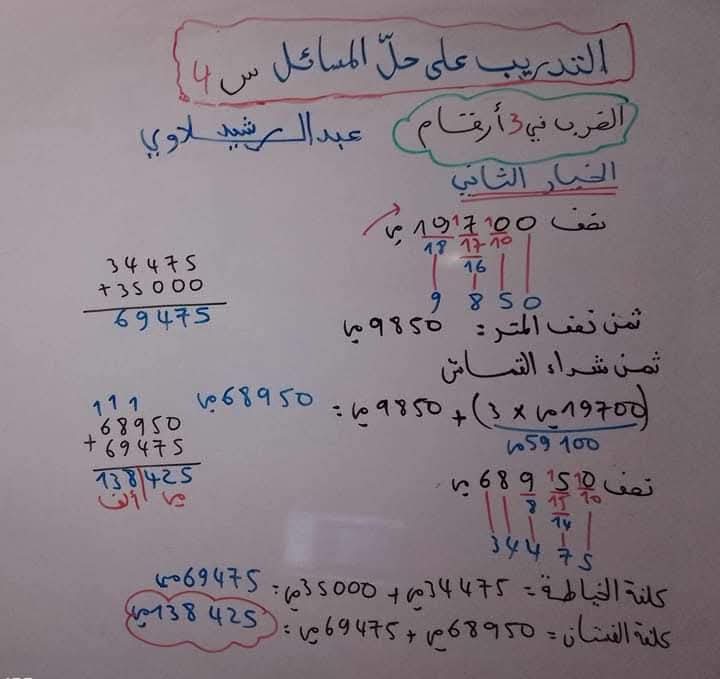 التدريب على حلّ المسائل س 4
الضرب في 3 أرقام
عبد الرشيد لاوي
الخيار الثاني
نصف 19700 م
18 17 10
16
9 8 5 0
34475
+35000
69475
ثمن نصف المتر: 9850 م
ثمن شراء القماش
(19700م × 3) + 9850م = 68950م
59100م
111
68950
+69475
138425
ألف م
نصف 68950 م
8 15 10
14
34475
كلفة الخياطة = 34475م + 35000م = 69475م
كلفة الفستان = 68950م + 69475م = 138425م